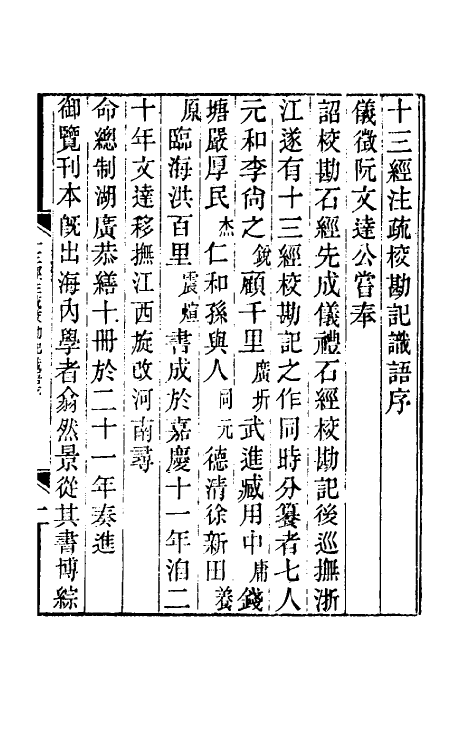 十三經注疏校勘記識語序
儀徵阮文達公嘗奉
詔校勘石經先成儀禮石經校勘記後巡撫浙
江遂有十三經校勘記之作同時分纂者七人
元和李尙之銳顧千里廣圻武進臧用中庸錢
塘嚴厚民杰仁和孫與人同元德清徐新田養
原臨海洪百里震煊書成於嘉慶十一年洎二
十年文達移撫江西旋改河南尋
命總制湖廣恭繕十冊於二十一年奏進
御覽刊本旣出海內學者翕然景從其書博綜